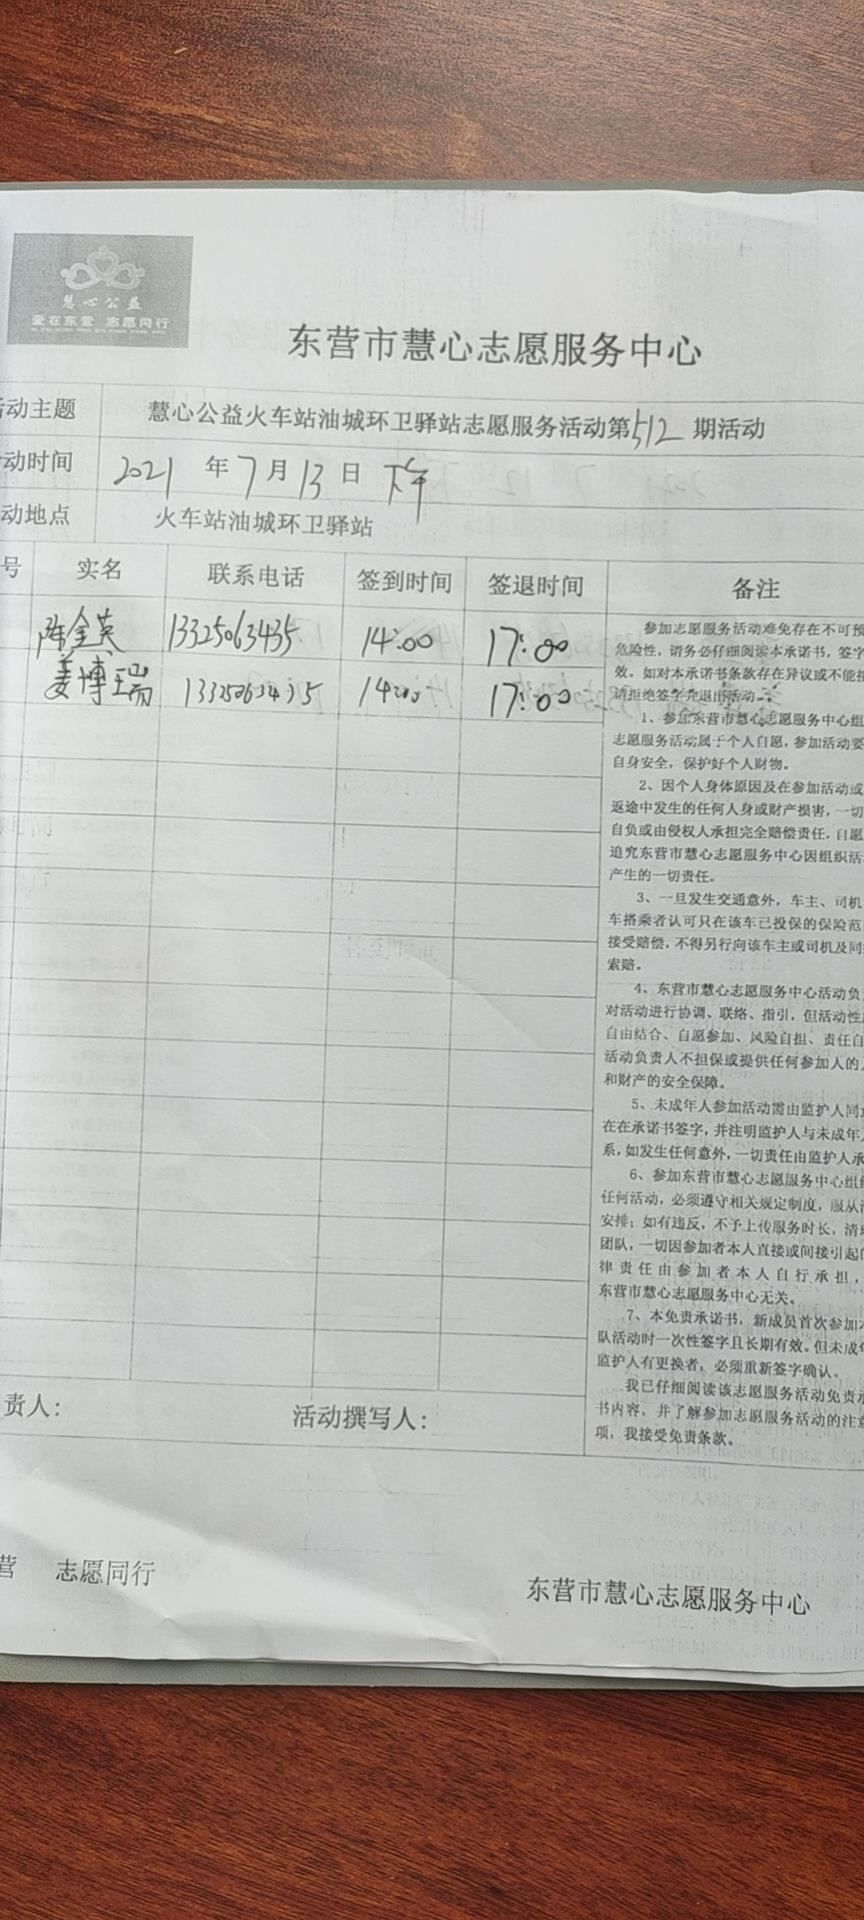 慧心公益
爱在东营 志愿同行
东营市慧心志愿服务中心
活动主题 慧心公益火车站油城环卫驿站志愿服务活动第512期活动
动时间 2021年7月13日 下午
动地点 火车站油城环卫驿站
号 实名 联系电话 签到时间 签退时间 备注
陈金英 13325063435 14:00 17:00
姜博瑞 13325063435 14:00 17:00
参加志愿服务活动难免存在不可预
危险性，请务必仔细阅读本承诺书，签字
效。如对本承诺书条款存在异议或不能接
请拒绝签字并退出活动。
1、参加东营市慧心志愿服务中心组
志愿服务活动属于个人自愿，参加活动要
自身安全，保护好个人财物。
2、因个人身体原因及在参加活动或
返途中发生的任何人身或财产损害，一切
自负或由侵权人承担完全赔偿责任，自愿
追究东营市慧心志愿服务中心因组织活
产生的一切责任。
3、一旦发生交通意外，车主、司机
车搭乘者认可只在该车已投保的保险范
接受赔偿，不得另行向该车主或司机及同
索赔。
4、东营市慧心志愿服务中心活动负
对活动进行协调、联络、指引，但活动性
自由结合、自愿参加、风险自担、责任自
活动负责人不担保或提供任何参加人的
和财产的安全保障。
5、未成年人参加活动需由监护人同
在在承诺书签字，并注明监护人与未成年
系，如发生任何意外，一切责任由监护人承
6、参加东营市慧心志愿服务中心组
任何活动，必须遵守相关规定制度，服从
安排；如有违反，不予上传服务时长，清
团队，一切因参加者本人直接或间接引起
律责任由参加者本人自行承担，
东营市慧心志愿服务中心无关。
7、本免责承诺书，新成员首次参加
队活动时一次性签字且长期有效。但未成年
监护人有更换者，必须重新签字确认。
我已仔细阅读该志愿服务活动免责承
书内容，并了解参加志愿服务活动的注意
项，我接受免责条款。
责人： 活动撰写人：
营 志愿同行 东营市慧心志愿服务中心